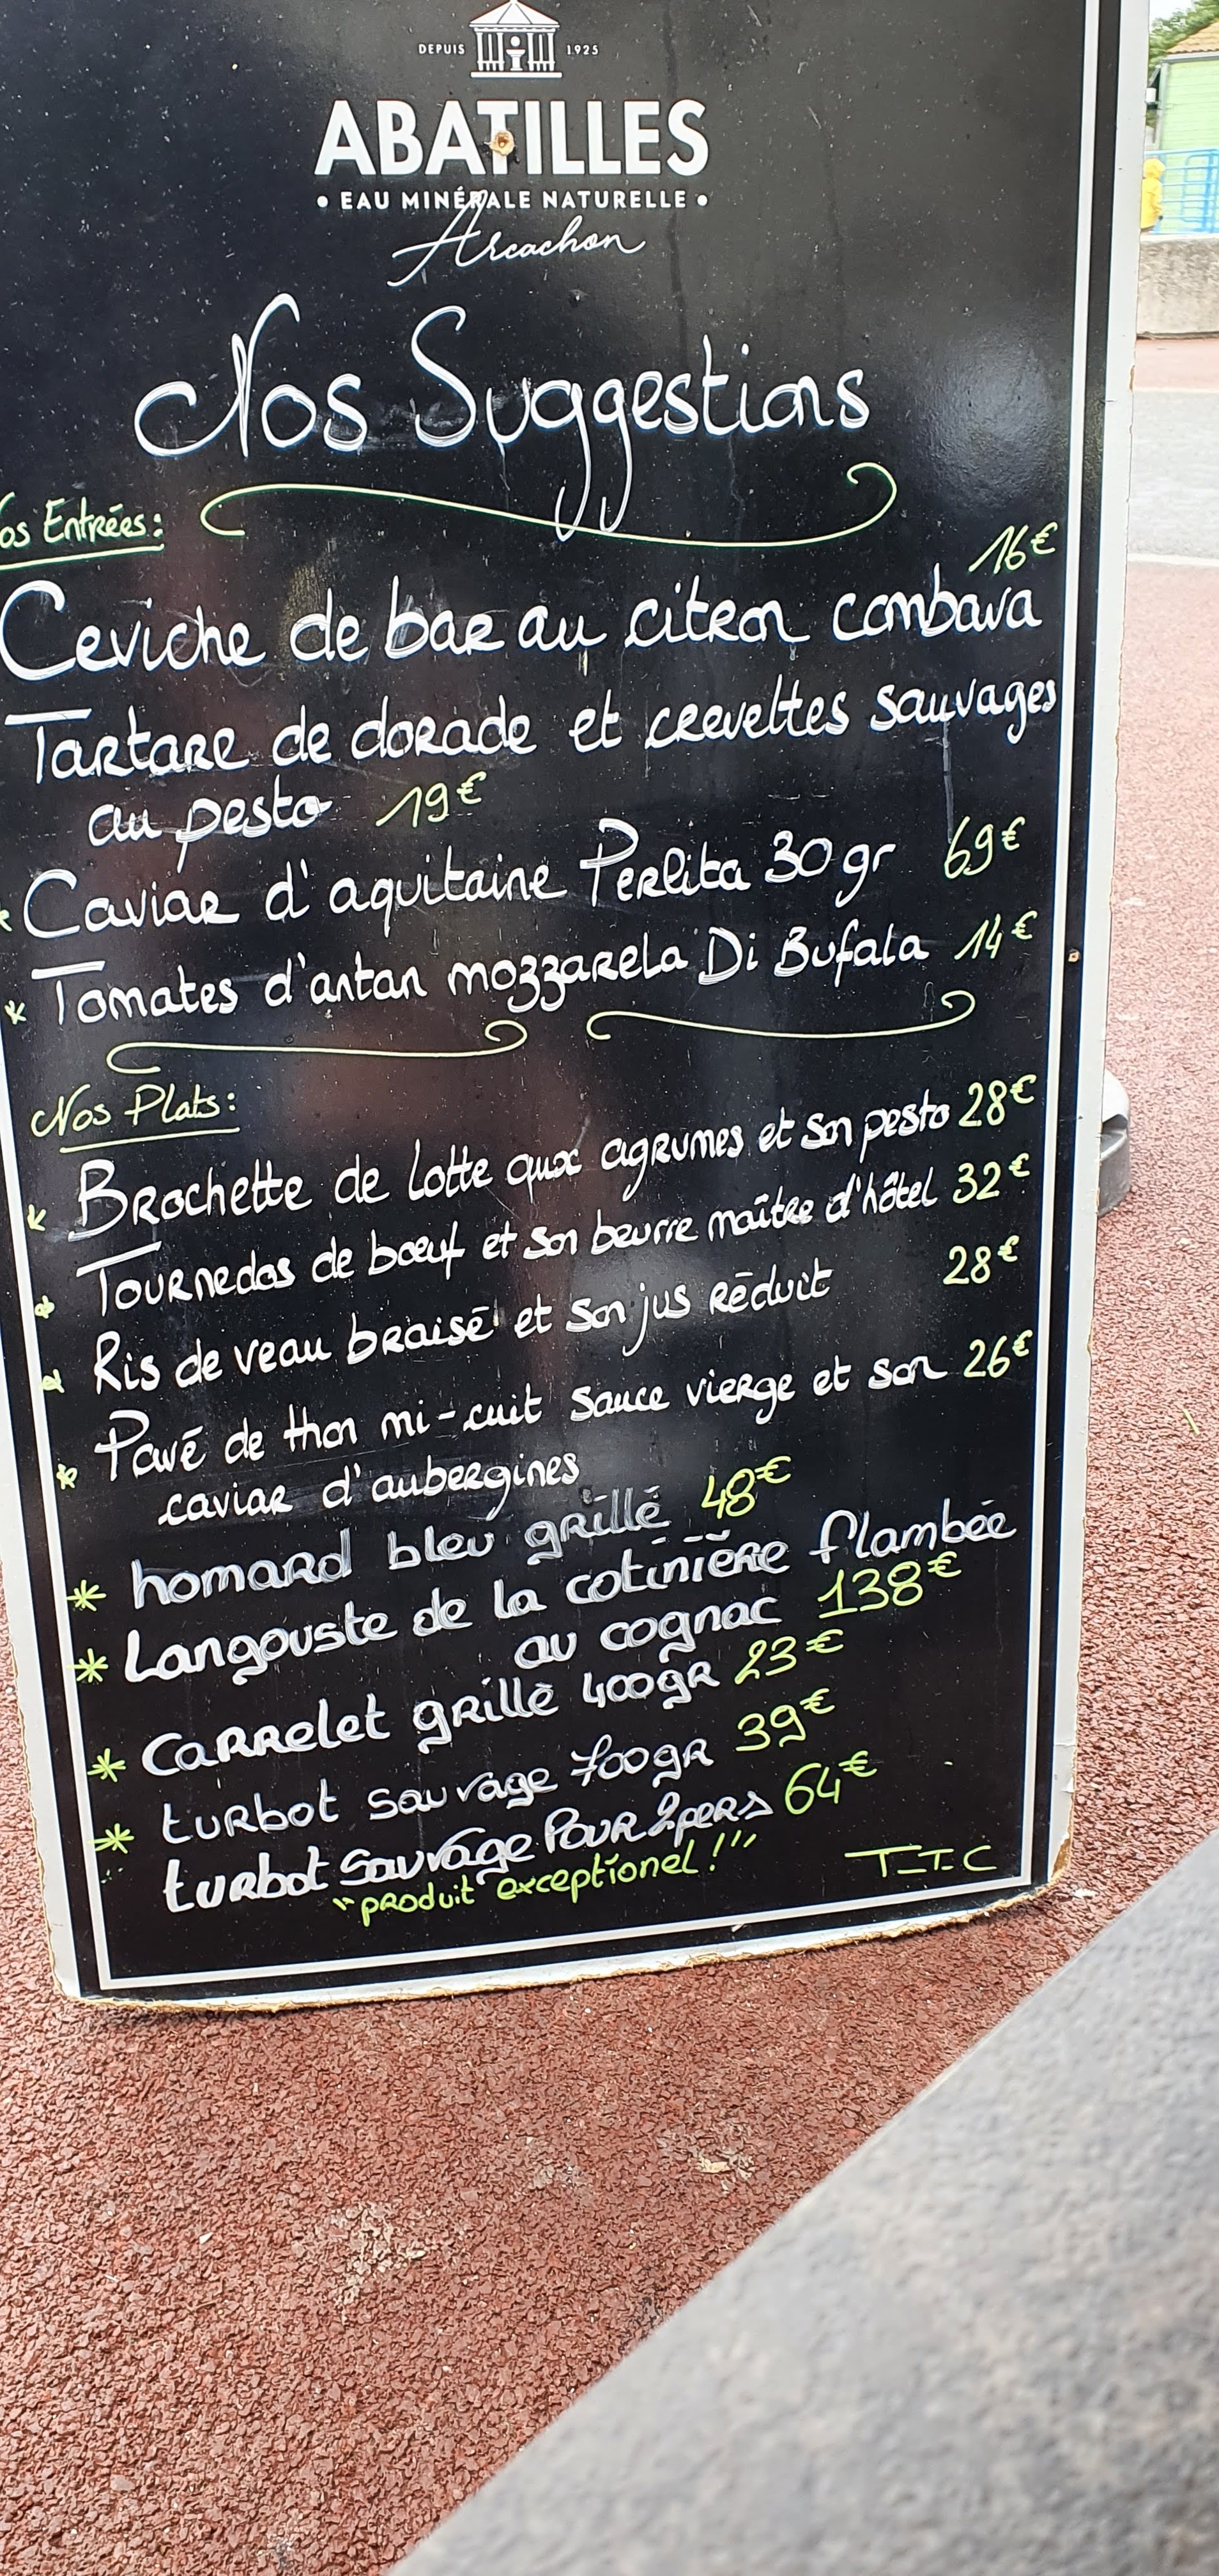 DEPUIS 1925
ABATILLES
• EAU MINÉRALE NATURELLE •
Arcachon
Nos Suggestions
os Entrées:
16€
Ceviche de bar au citron combava
Tartare de dorade et crevettes sauvages
au pesto 19€
* Caviar d'aquitaine Perlita 30gr 69€
* Tomates d'antan mozzarela Di Bufala 14€
Nos Plats:
* Brochette de lotte aux agrumes et son pesto 28€
* Tournedos de bœuf et son beurre maître d'hôtel 32€
* Ris de veau braisé et son jus réduit 28€
* Pavé de thon mi-cuit sauce vierge et son 26€
caviar d'aubergines
* homard bleu grillé 48€
* Langouste de la cotinière flambée
au cognac 138€
* Carrelet grillé 400gr 23€
* turbot sauvage 700gr 39€
turbot sauvage Pour 2 pers 64€
"produit exceptionel!" T-T-C